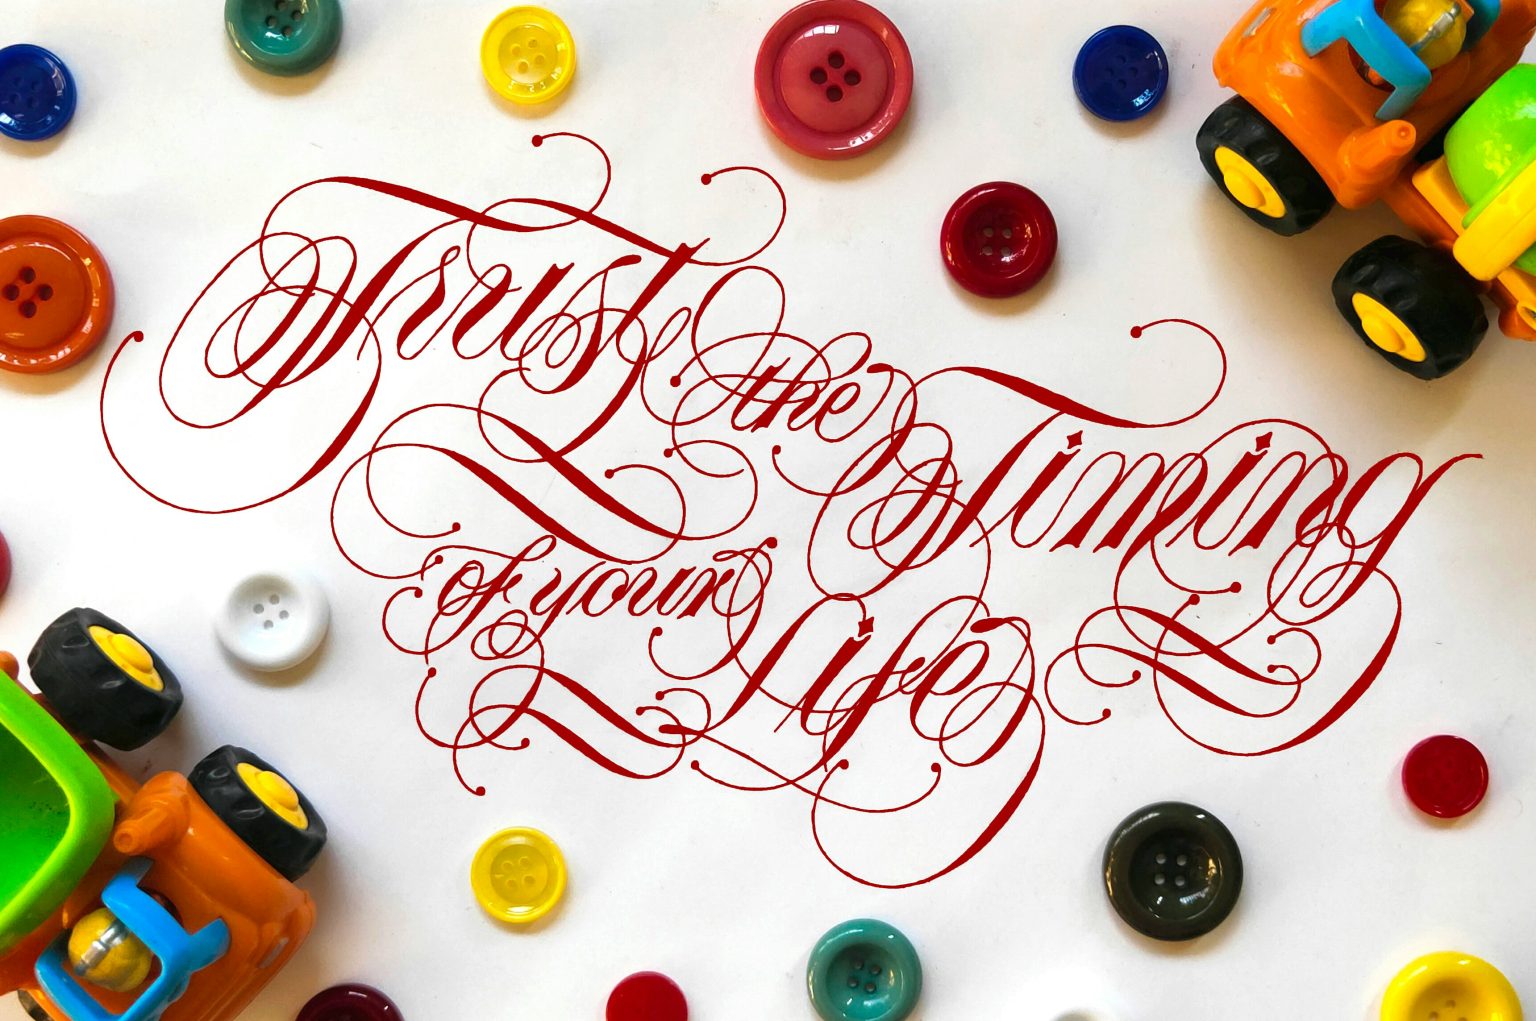 Trust the Timing
of your Life